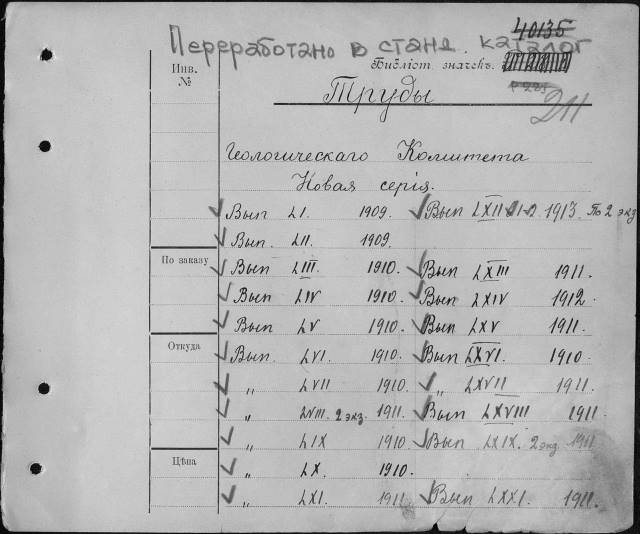 40135
Переработано в станд. каталог
Инв. №
Библіот. значекъ.
Труды
211
Геологическаго Комитета
Новая серія.
Вып LI. 1909. Вып LXII 1913. По 2 экз
Вып. LII. 1909.
По заказу
Вып LIII. 1910. Вып LXIII 1911.
Вып LIV 1910. Вып LXIV 1912.
Вып LV 1910. Вып LXV 1911.
Откуда
Вып. LVI. 1910. Вып LXVI. 1910.
„ LVII 1910. „ LXVII 1911.
„ LVIII. 2 экз. 1911. Вып LXVIII 1911.
„ LIX 1910. Вып LXIX. 2 экз 1911
Цѣна
„ LX. 1910.
„ LXI. 1911. Вып LXXI. 1911.